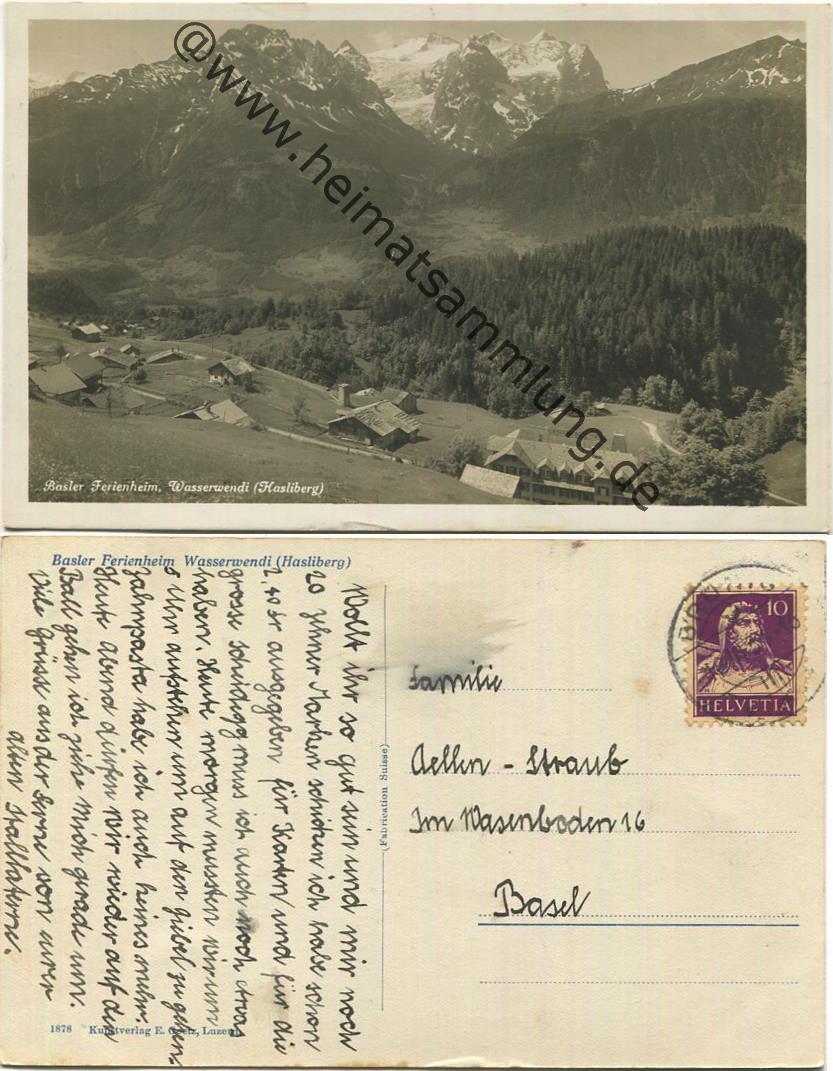 @www.heimatsammlung.de
Basler Ferienheim, Wasserwendi (Hasliberg)
Basler Ferienheim Wasserwendi (Hasliberg)
Wollt ihr so gut sein und mir noch
20 Zehner Marken schicken ich habe schon
2.40 fr ausgegeben für Karten und für die
grosse Scheidegg muss ich auch noch etwas
haben. Heute morgen mussten wir um
5 Uhr aufstehen um auf den Gibel zu gehen
Zahnpasta habe ich auch keines mehr.
Heute Abend dürfen wir wieder auf den
Ball gehen ich ziehe mich gerade um.
Viele Grüsse aus der Ferne von eurer
alten Stalllaterne.
(Fabrication Suisse)
Familie
Aellen - Straub
Im Wasenboden 16
Basel
10
HELVETIA
1878 Kunstverlag E. Goetz, Luzern